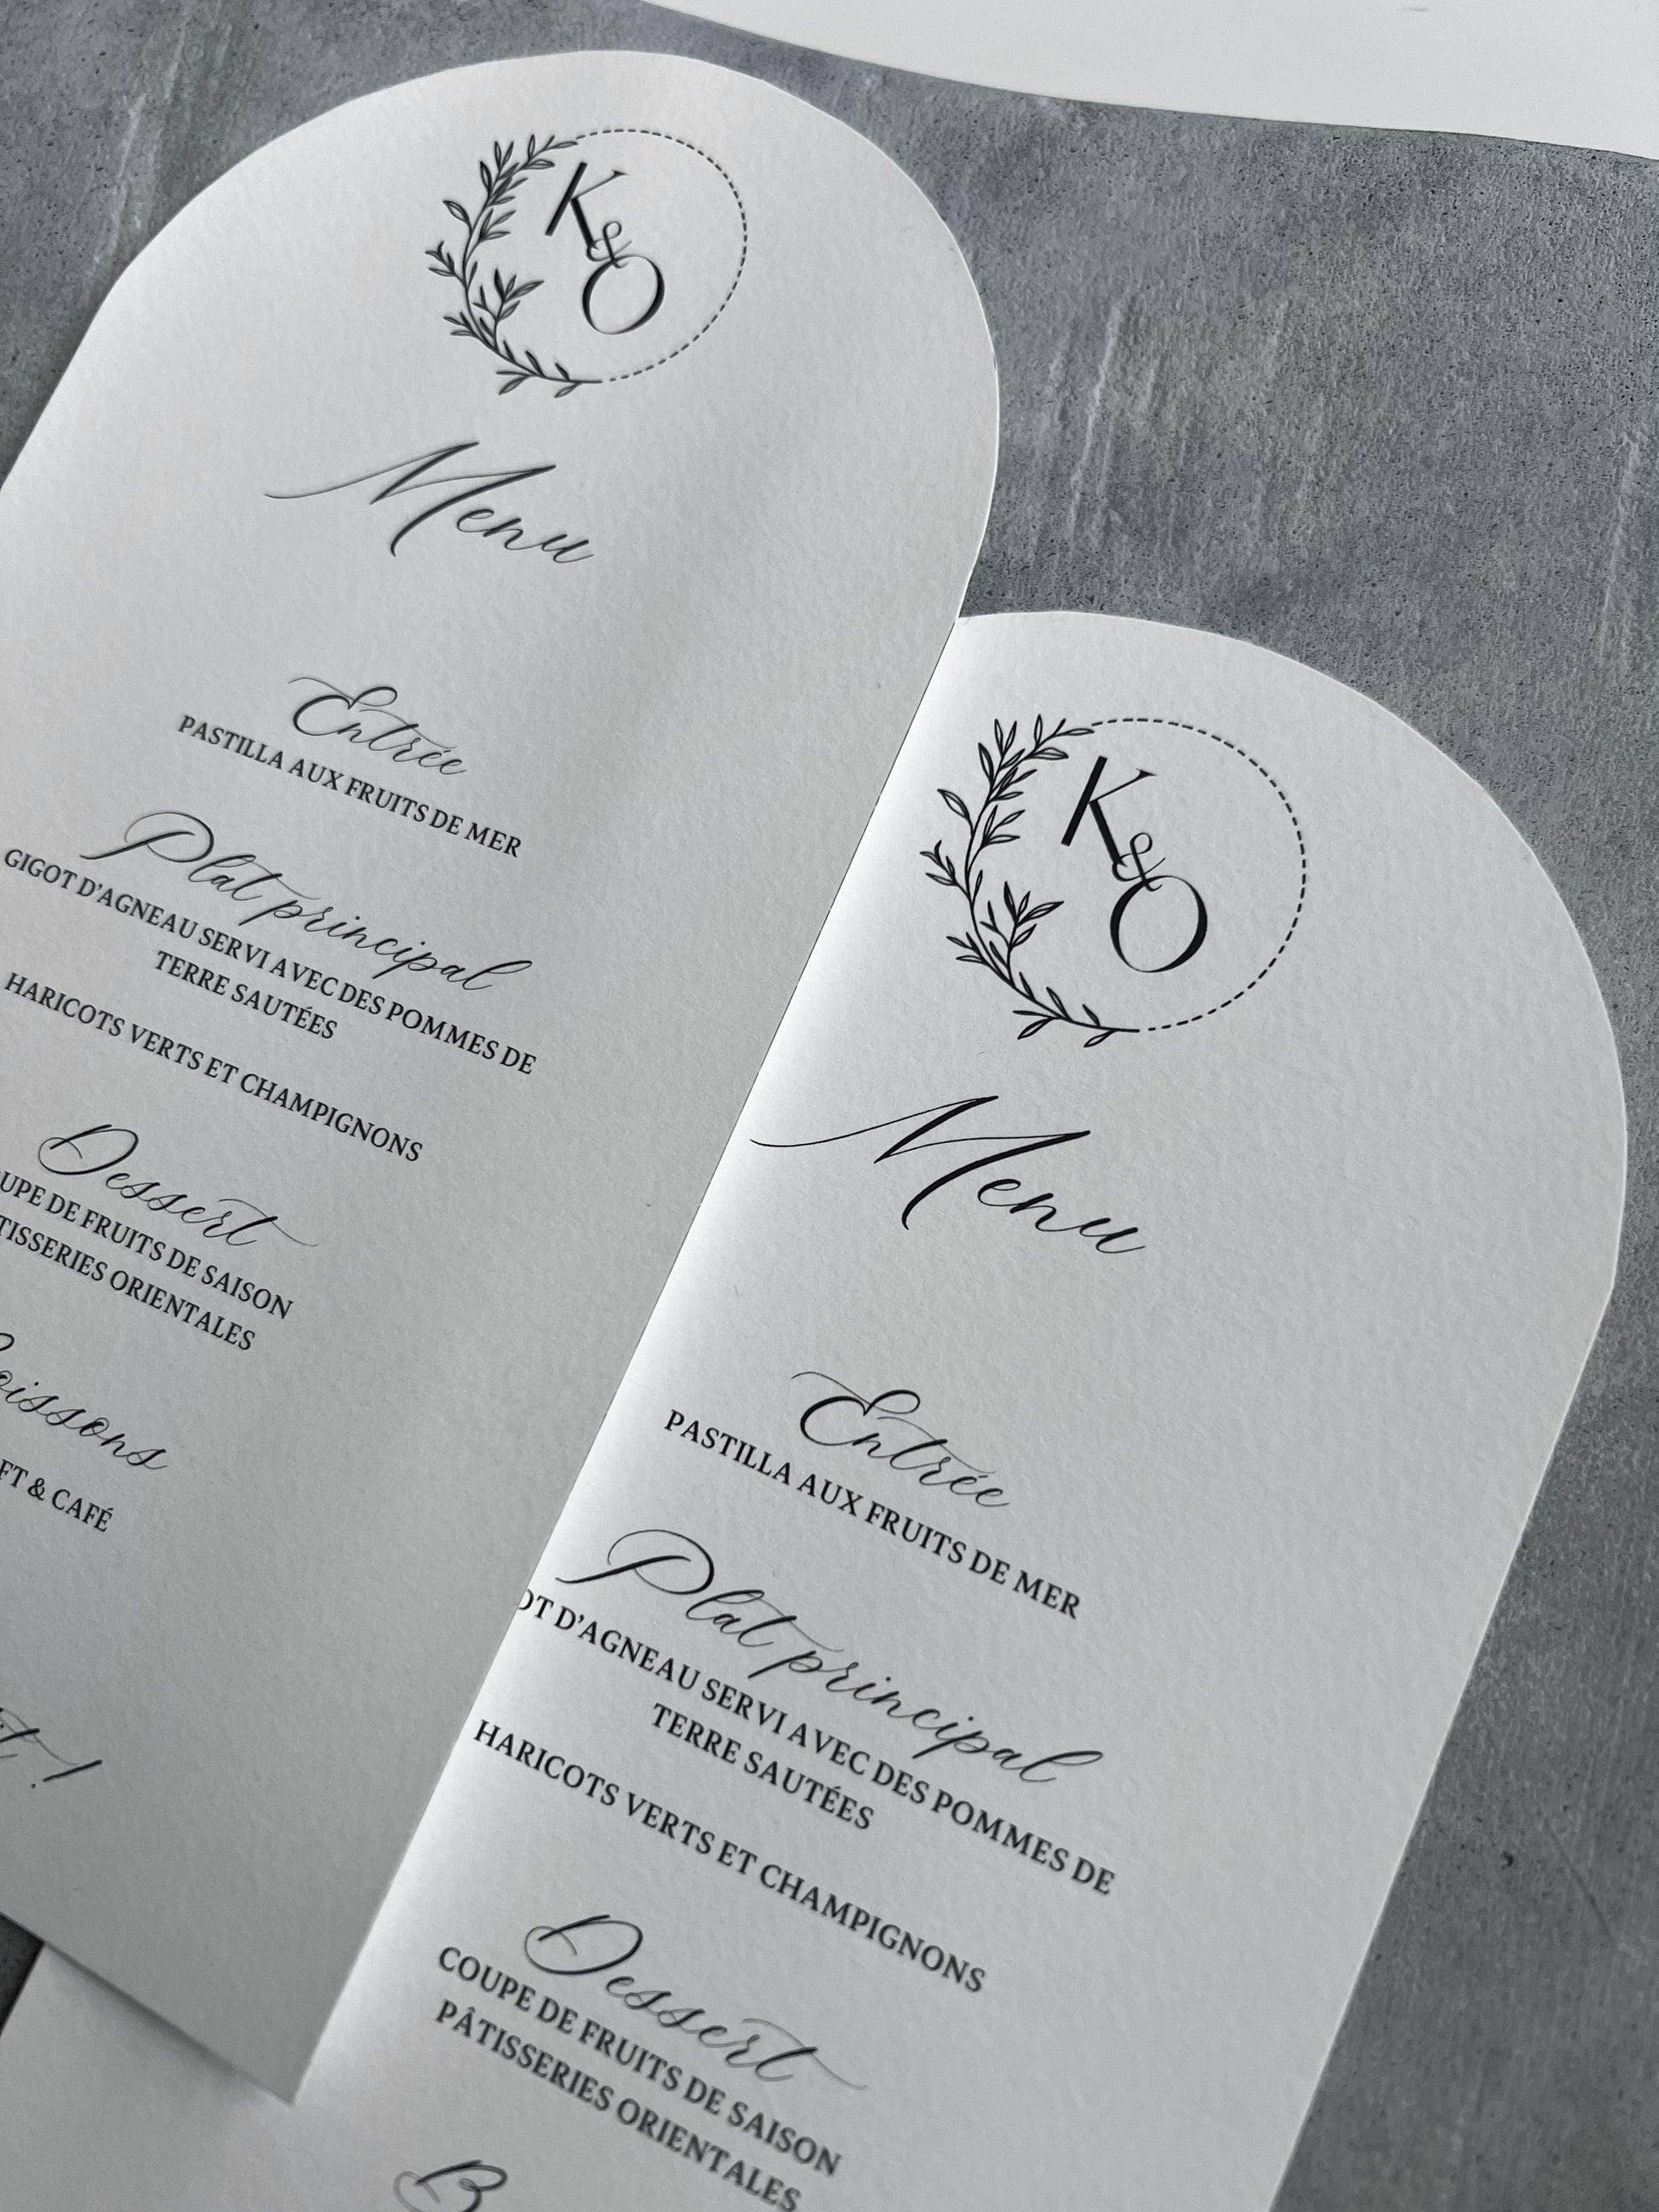 K
&
O
Menu
Entrée
PASTILLA AUX FRUITS DE MER
Plat principal
GIGOT D'AGNEAU SERVI AVEC DES POMMES DE
TERRE SAUTÉES
HARICOTS VERTS ET CHAMPIGNONS
Dessert
DE FRUITS DE SAISON
ORIENTALES
& CAFÉ
K
&
O
Menu
Entrée
PASTILLA AUX FRUITS DE MER
Plat principal
D'AGNEAU SERVI AVEC DES POMMES DE
TERRE SAUTÉES
HARICOTS VERTS ET CHAMPIGNONS
Dessert
COUPE DE FRUITS DE SAISON
PÂTISSERIES ORIENTALES